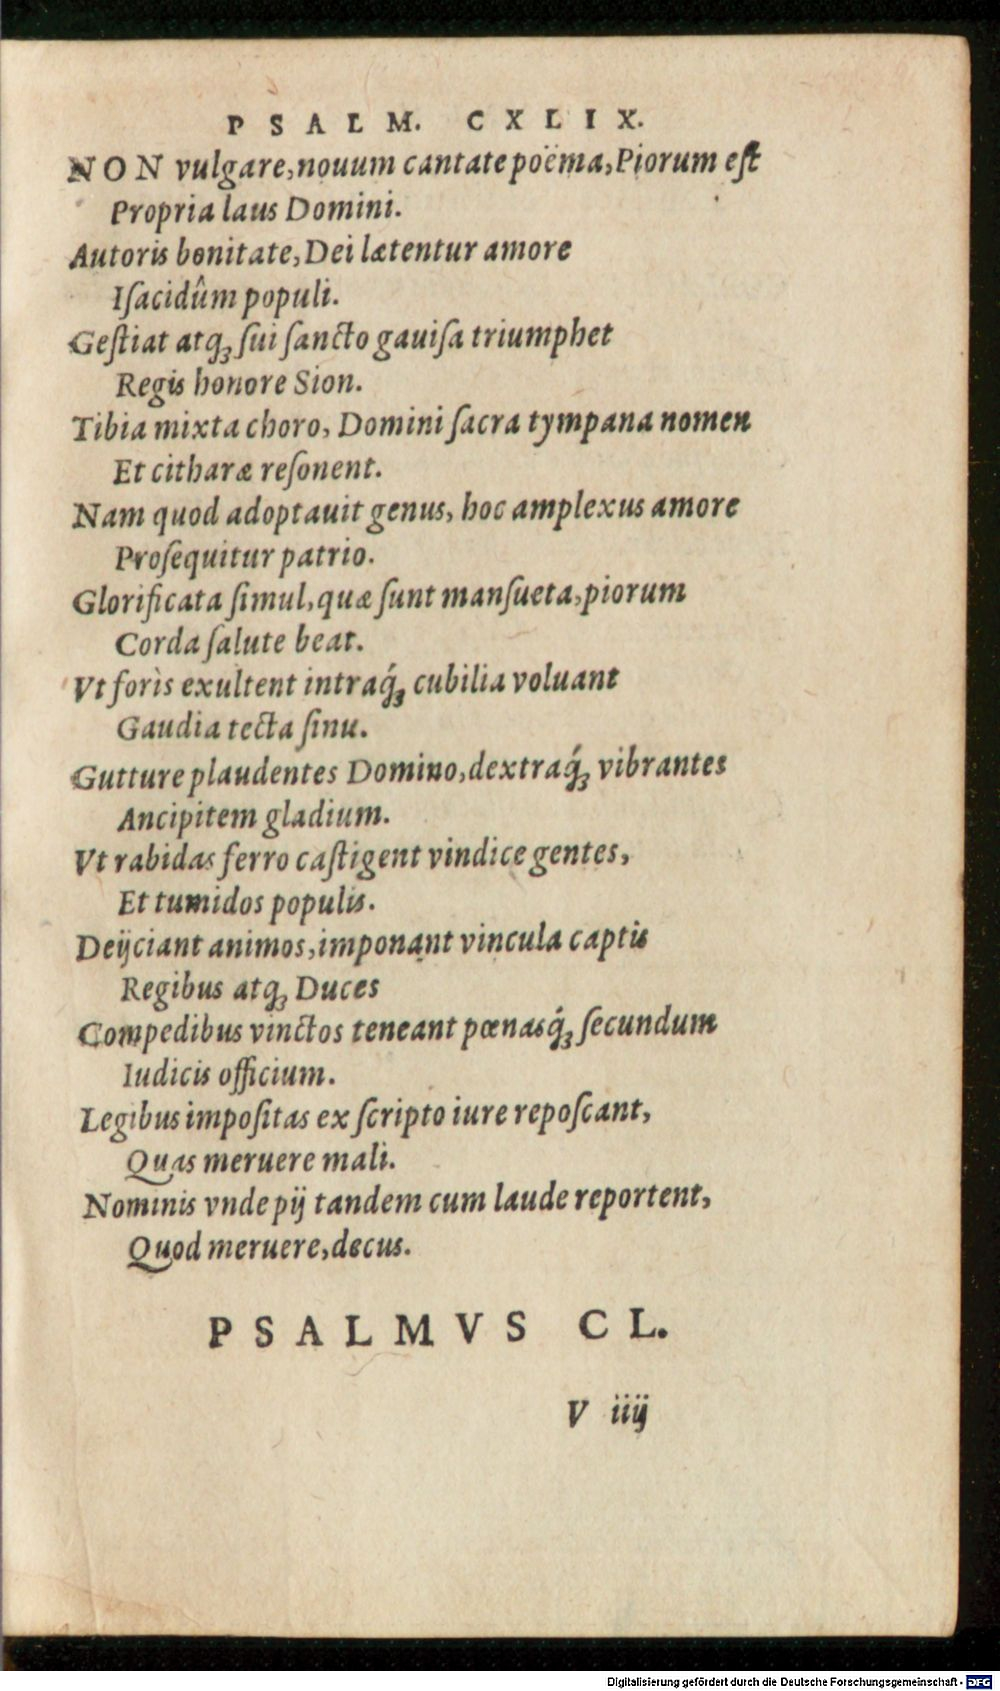 PSALM. CXLIX.
NON vulgare, nouum cantate poëma, Piorum eſt
Propria laus Domini.
Autoris bonitate, Dei lætentur amore
Iſacidûm populi.
Geſtiat atqꝫ ſui ſancto gauiſa triumphet
Regis honore Sion.
Tibia mixta choro, Domini ſacra tympana nomen
Et citharæ reſonent.
Nam quod adoptauit genus, hoc amplexus amore
Proſequitur patrio.
Glorificata ſimul, quæ ſunt manſueta, piorum
Corda ſalute beat.
Vt forìs exultent intraq́ꝫ cubilia voluant
Gaudia tecta ſinu.
Gutture plaudentes Domino, dextraq́ꝫ vibrantes
Ancipitem gladium.
Vt rabidas ferro caſtigent vindice gentes,
Et tumidos populis.
Deijciant animos, imponant vincula captis
Regibus atqꝫ Duces
Compedibus vinctos teneant pœnasq́ꝫ ſecundum
Iudicis officium.
Legibus impoſitas ex ſcripto iure repoſcant,
Quas meruere mali.
Nominis vnde pij tandem cum laude reportent,
Quod meruere, decus.
PSALMVS CL.
V iiij
Digitalisierung gefördert durch die Deutsche Forschungsgemeinschaft - DFG